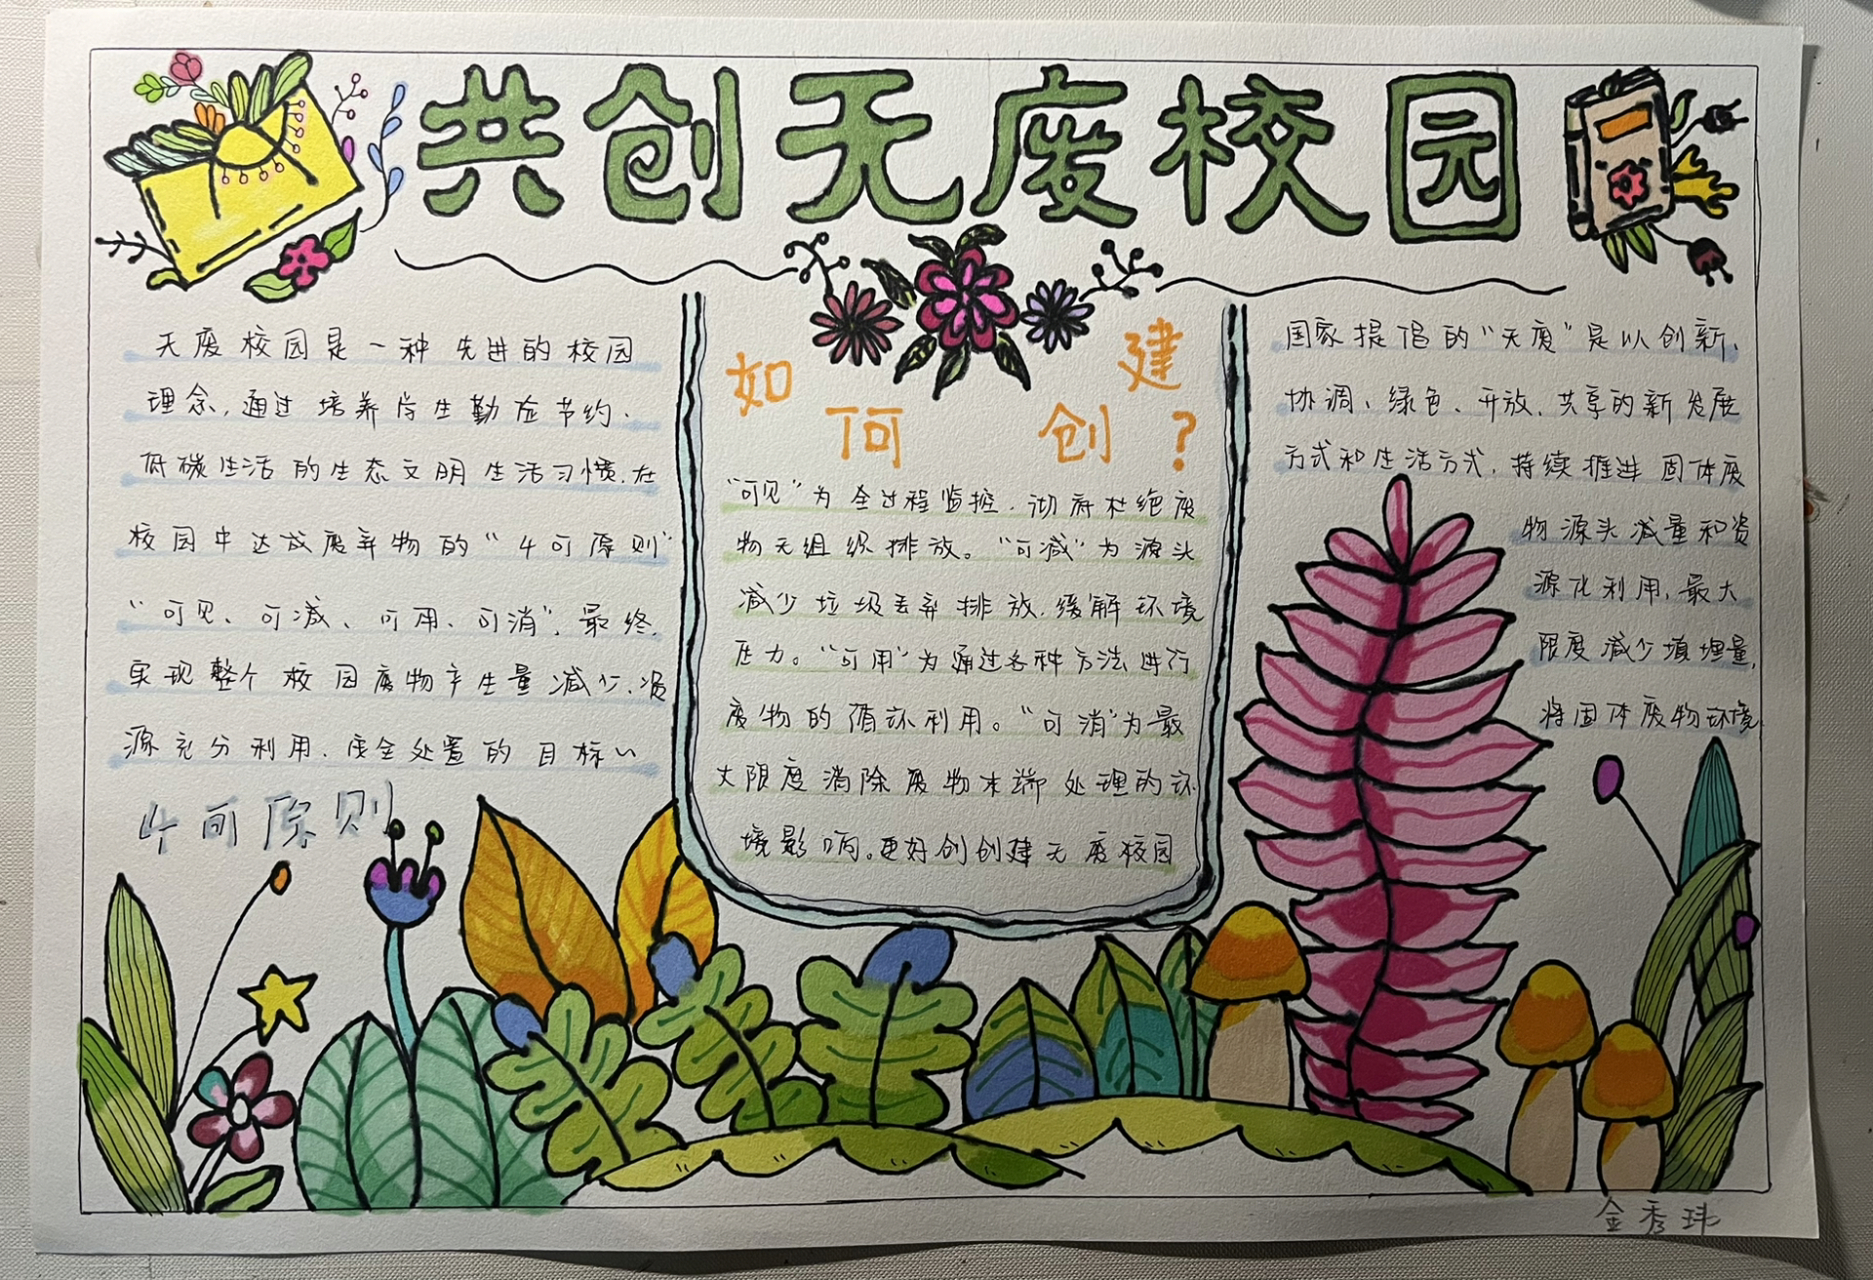 共创无废校园
无废校园是一种先进的校园
理念,通过培养学生勤俭节约、
低碳生活的生态文明生活习惯,在
校园中达成废弃物的“4可原则”
“可见、可减、可用、可消”,最终,
实现整个校园废物产生量减少、资
源充分利用、安全处置的目标
4可原则
如何创建?
“可见”为全过程监控,彻底杜绝废
物无组织排放。“可减”为源头
减少垃圾丢弃排放,缓解环境
压力。“可用”为通过各种方法进行
废物的循环利用。“可消”为最
大限度消除废物末端处理的环
境影响。更好创创建无废校园
国家提倡的“无废”是以创新、
协调、绿色、开放、共享的新发展
方式和生活方式,持续推进固体废
物源头减量和资
源化利用,最大
限度减少填埋量,
将固体废物环境
金秀玮